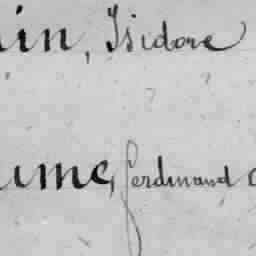 in, Isidore
ume, ferdinand